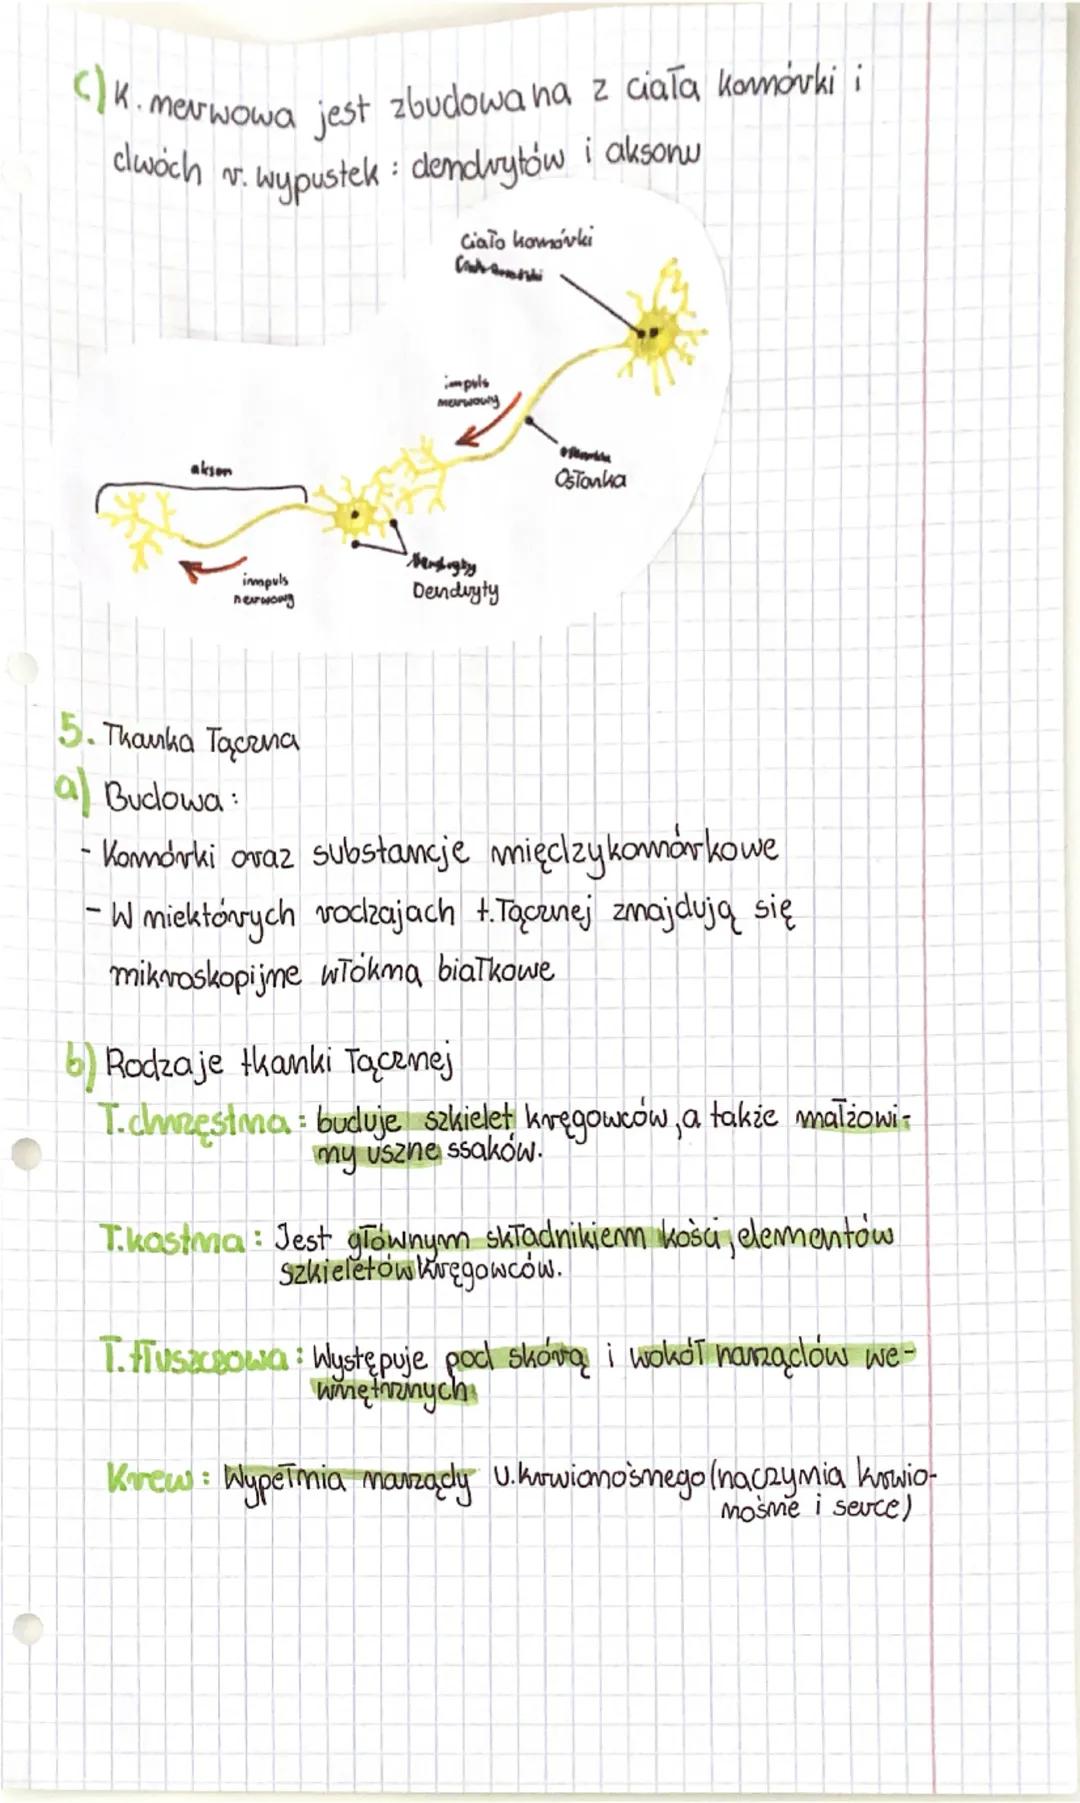 c) K. nerwowa jest zbudowana z ciała komórki i
dwóch r. wypustek : dendrytów i aksonu
Ciało komórki
impuls
nerwowy
Osłonka
akson
impuls
nerwowy
Dendryty
5. Tkanka łączna
a) Budowa :
- Komórki oraz substancje międzykomórkowe
- W niektórych rodzajach t. łącznej znajdują się
mikroskopijne włókna białkowe
b) Rodzaje tkanki łącznej
T. chrzęstna : buduje szkielet kręgowców, a także małżowi-
ny uszne ssaków.
T. kostna : Jest głównym składnikiem kości, elementów
szkieletów kręgowców.
T. tłuszczowa : Występuje pod skórą i wokół narządów we-
wnętrznych
Krew : Wypełnia narządy u. krwionośnego (naczynia krwio-
nośne i serce)